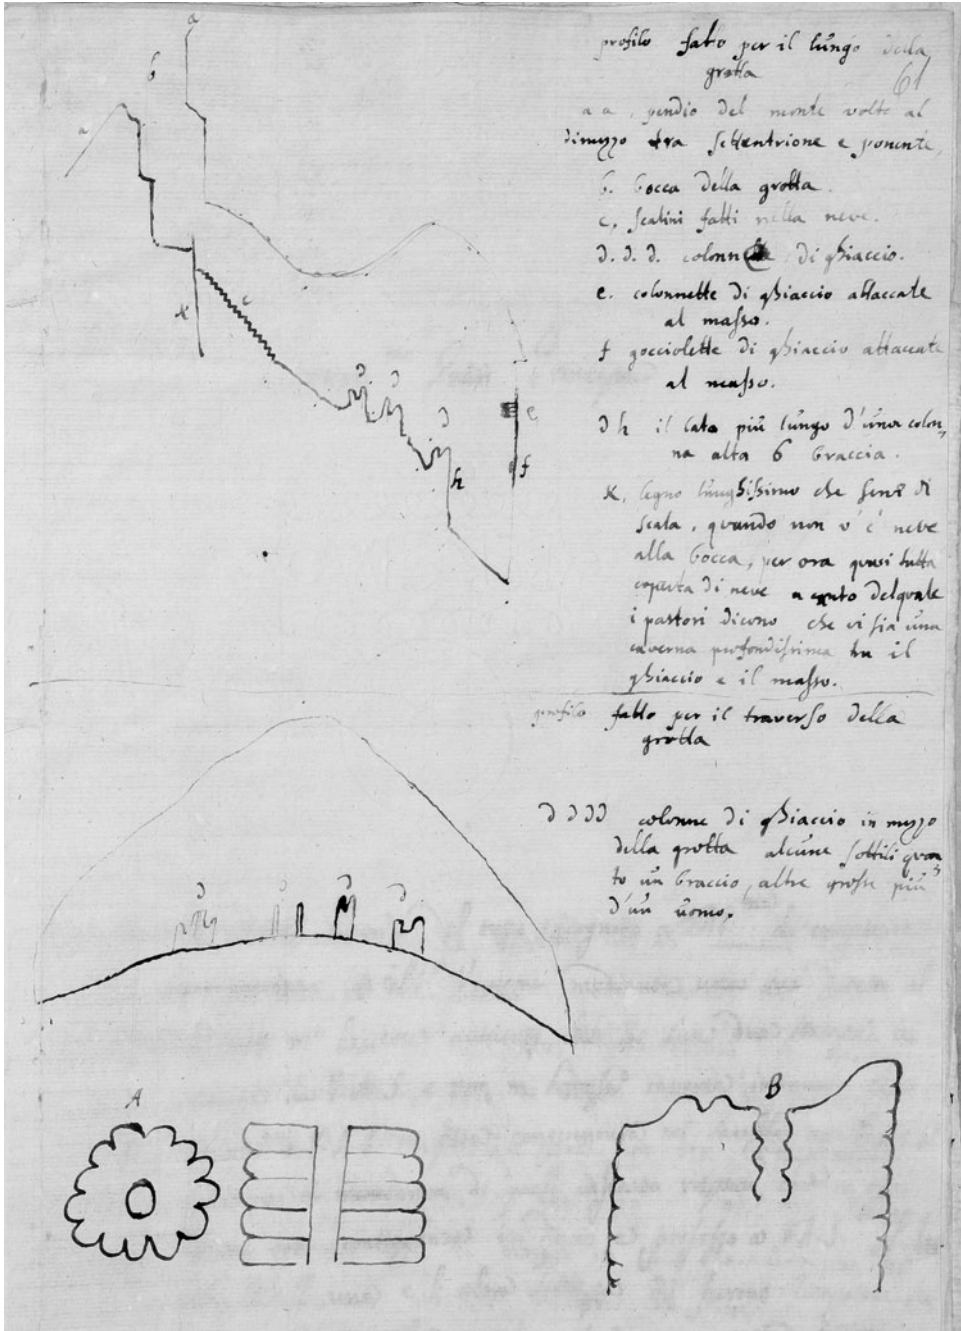 profilo fatto per il lungo della
grotta
61
a a, pendio del monte volto al
dimezzo tra settentrione e ponente,
b. bocca della grotta.
c, scalini fatti nella neve.
d. d. d. colonne di ghiaccio.
e. colonnette di ghiaccio attaccate
al masso.
f gocciolette di ghiaccio attaccate
al masso.
d h il lato più lungo d'una colon,
na alta 6 braccia.
x, legno lunghissimo che serve di
scala, quando non v'è neve
alla bocca, per ora quasi tutta
coperta di neve a canto del quale
i pastori dicono che vi sia una
caverna profondissima tra il
ghiaccio e il masso.
profilo fatto per il traverso della
grotta
d d d d colonne di ghiaccio in mezzo
della grotta alcune sottili quan
to un braccio, altre grosse più
d'un uomo.
a
b
a
c
x
d
d
d
e
h
f
d
d
d
d
A
B